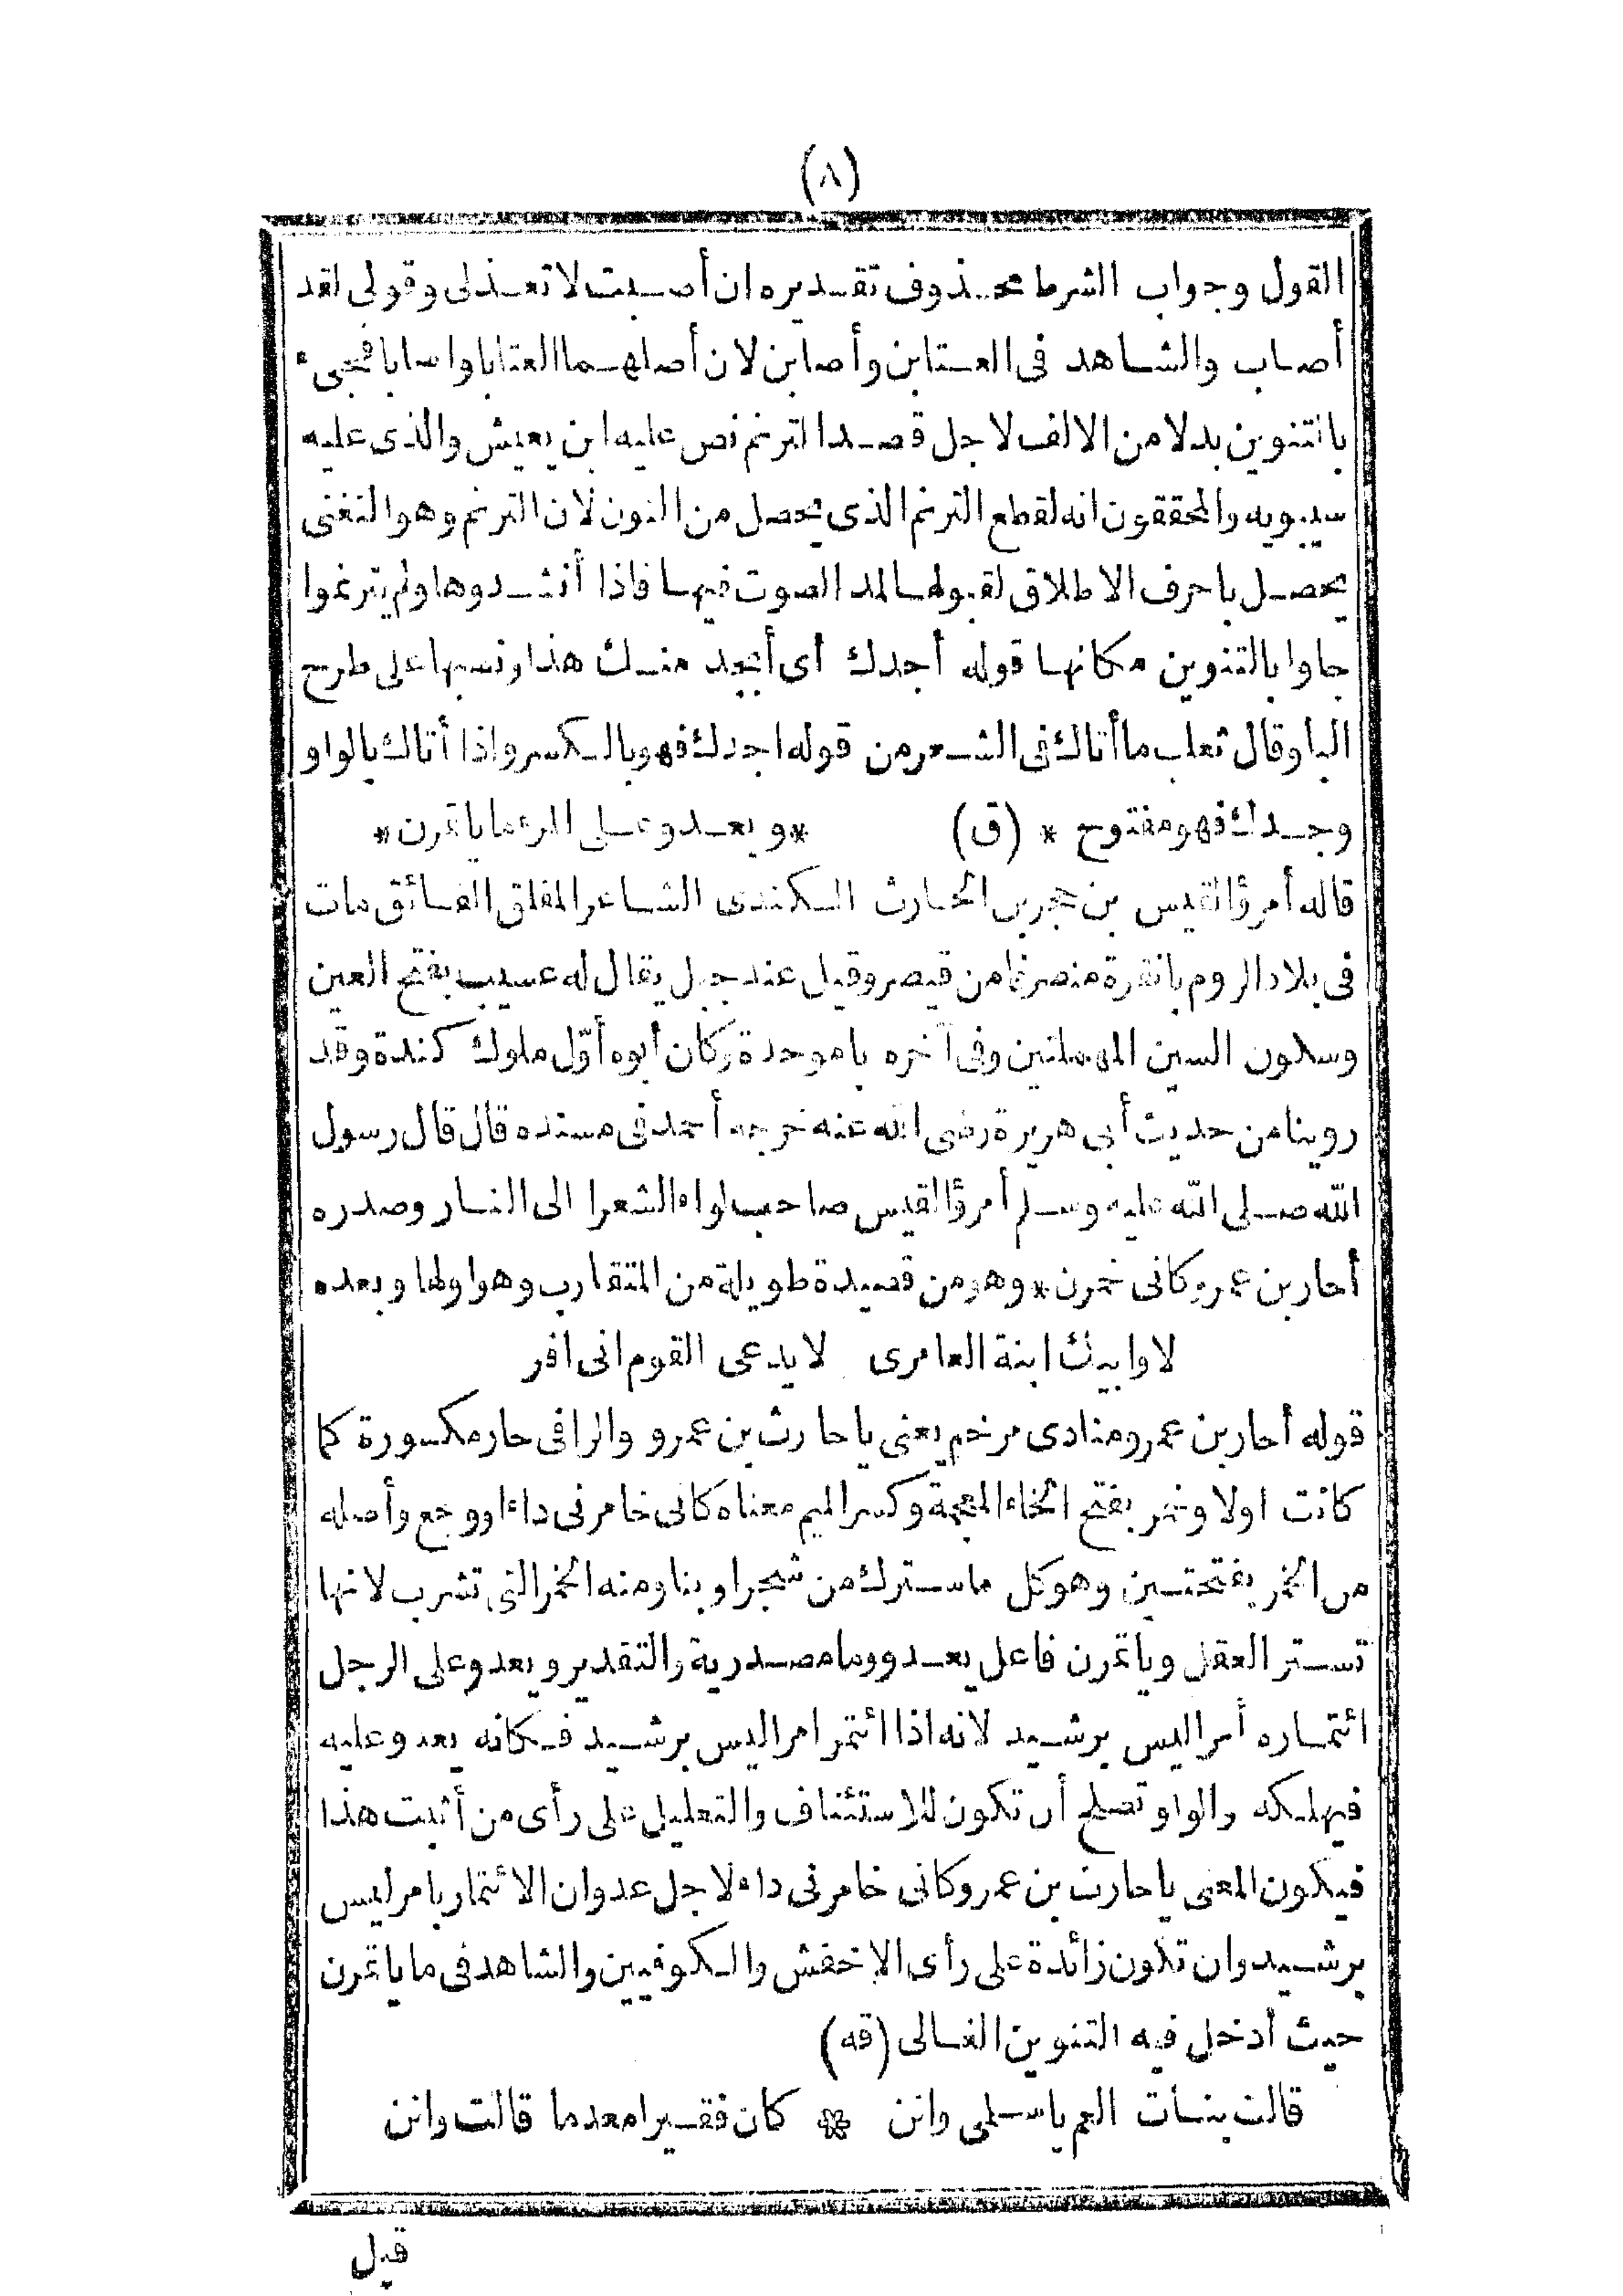 (٨)
القول وجواب الشرط محذوف تقديره ان أصبت لا تعذلى وقولى لقد
أصاب والشاهد فى العتابن وأصابن لان أصلهما العتابا واصابا فجىء
بالتنوين بدلا من الالف لاجل قصد الترنم نص عليه ابن يعيش والذى عليه
سيبويه والمحققون انه لقطع الترنم الذى يحصل من النون لان الترنم وهو التغنى
يحصل باحرف الاطلاق لقبولها لمد الصوت فيها فاذا أنشدوها ولم يترنموا
جاوا بالتنوين مكانها قوله أجدك أى أبجد منك هذا ونصبها على طرح
البا وقال ثعلب ما أتاك فى الشعر من قوله اجدك فهو بالكسر واذا أتاك بالواو
وجدك فهو مفتوح * (ق) * ويعدو على المرء ما ياتمرن *
قاله أمرؤ القيس بن حجر بن الحارث الكندى الشاعر المفلق الفائق مات
فى بلاد الروم بانقرة منصرفا من قيصر وقيل عند جبل يقال له عسيب بفتح العين
وسكون السين المهملتين وفى آخره باموحدة وكان أبوه أوّل ملوك كندة وقد
روينا من حديث أبى هريرة رضى الله عنه خرجه أحمد فى مسنده قال قال رسول
الله صلى الله عليه وسلم أمرؤ القيس صاحب لواء الشعرا الى النار وصدره
أحار بن عمرو كانى خمرن * وهو من قصيدة طويلة من المتقارب وهو اولها وبعده
لا وابيك ابنة العامرى لا يدعى القوم انى افر
قوله أحار بن عمرو منادى مرخم يعنى يا حارث بن عمرو والرا فى حار مكسورة كما
كانت اولا وخمر بفتح الخاء المعجمة وكسر الميم معناه كانى خامرنى داء او وجع وأصله
من الخمر بفتحتين وهو كل ما سترك من شجر او بنا ومنه الخمر التى تشرب لانها
تستر العقل وياتمرن فاعل يعدو وما مصدرية والتقدير ويعدو على الرجل
ائتماره أمر اليس برشيد لانه اذا ائتمر امر اليس برشيد فكانه يعدو عليه
فيهلكه والواو تصلح أن تكون للاستئناف والتعليل على رأى من أثبت هذا
فيكون المعنى يا حارث بن عمرو كانى خامرنى داء لاجل عدوان الائتمار بامر ليس
برشيد وان تكون زائدة على رأى الاخفش والكوفيين والشاهد فى ما ياتمرن
حيث أدخل فيه التنوين الغالى (قه)
قالت بنات العم يا سلمى وانن * كان فقيرا معدما قالت وانن
قيل